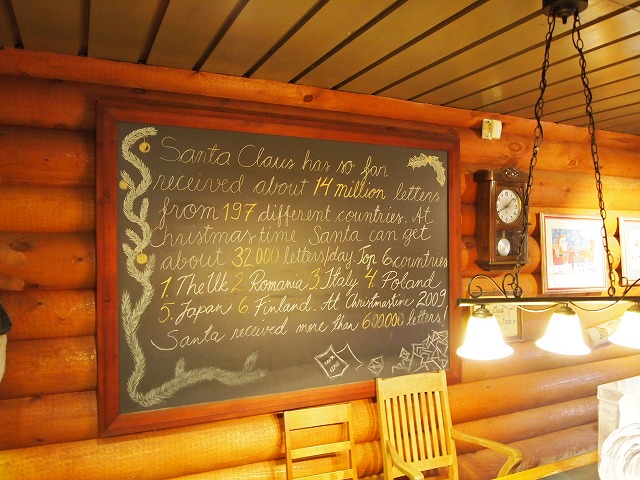 Santa Claus has so far
received about 14 million letters
from 197 different countries. At
Christmastime Santa can get
about 32 000 letters/day. Top 6 countries
1. The Uk 2 Romania 3. Italy 4. Poland
5. Japan 6. Finland. At Christmastime 2009
Santa received more than 600000 letters!